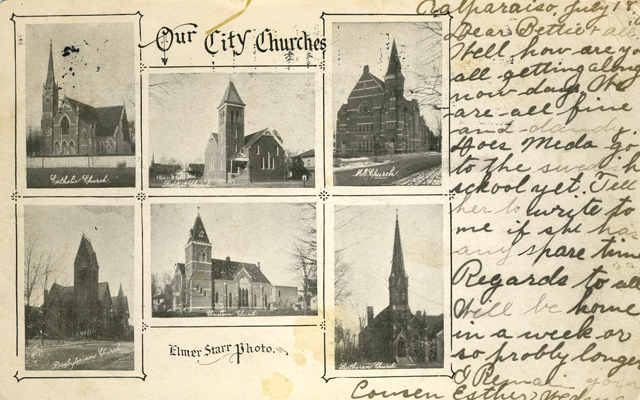 Our City Churches
Catholic Church
Baptist Church
M.E. Church
Presbyterian Church
Christian Church
Lutheran Church
Elmer Starr Photo.
Valparaiso, July 18
Dear Bettie + all
Well how are yo
all getting along
now-days. We
are-all fine
and-dandy
Does Meda go
to the swedish
school yet. Tell
her to write to
me if she has
any spare time
Regards to all
Will be home
in a week or
so probly longer
I Remain your
Cousen Esther